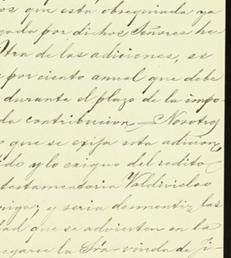 os que está obsequiada ya
gado por dichos Señores he
Otra de las adiciones, es
e por ciento anual que debe
durante el plazo de la impo
da contribucion — Nosotros
o que se exija esta adicion,
ido y lo exiguo del redito
testamentaria Valdivielso
; y seria desmentir las
dad que se advierten en la
negarse la Sra. viuda de